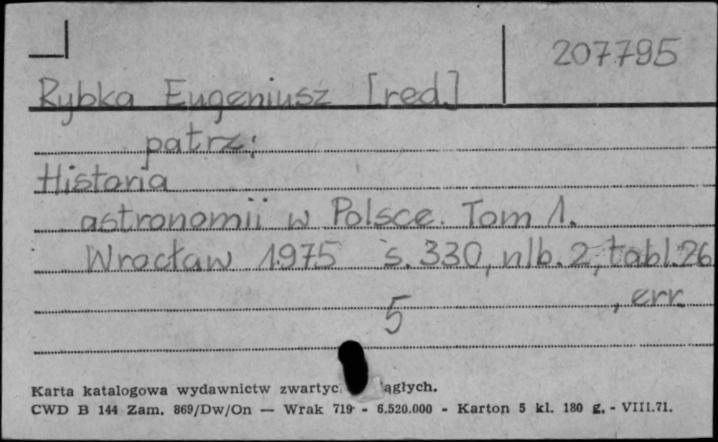 207795
Rybka Eugeniusz [red.]
patrz:
Historia
astronomii w Polsce. Tom 1.
Wrocław 1975 s. 330, nlb. 2, tabl. 26
, err.
5
Karta katalogowa wydawnictw zwartyc ągłych.
CWD B 144 Zam. 869/Dw/On — Wrak 719 - 6.520.000 - Karton 5 kl. 180 g. - VIII.71.